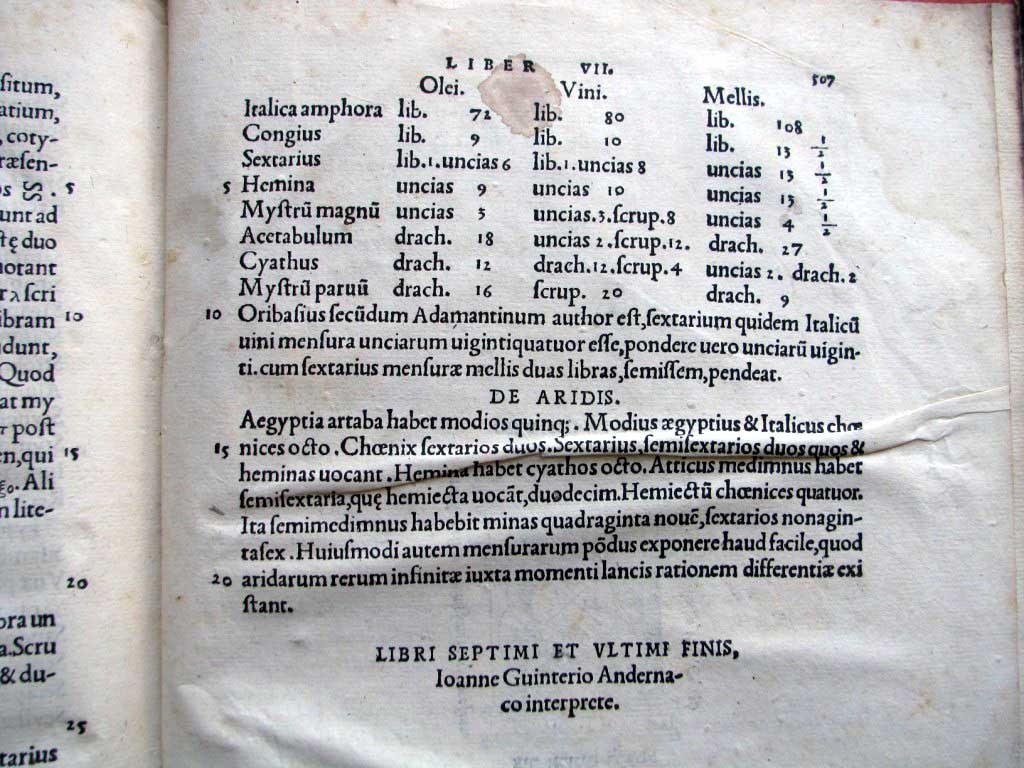 ſitum,
atium,
, coty-
ræſen-
os . 5
unt ad
ſtę duo
notant
r λ ſcri
ibram 10
dunt,
Quod
at my
poſt
en,qui 15
. Ali
n lite-
20
ora un
a.Scru
& du-
25
tarius
LIBER VII. 507
Olei. Vini. Mellis.
Italica amphora lib. 72 lib. 80 lib. 108
Congius lib. 9 lib. 10 lib. 13 1/2
Sextarius lib.1.uncias 6 lib.1.uncias 8 uncias 13 1/2
5 Hemina uncias 9 uncias 10 uncias 13 1/2
Myſtrū magnū uncias 3 uncias.3.ſcrup.8 uncias 4 1/2
Acetabulum drach. 18 uncias 2.ſcrup.12. drach. 27
Cyathus drach. 12 drach.12.ſcrup.4 uncias 2. drach.2
Myſtrū paruū drach. 16 ſcrup. 20 drach. 9
10 Oribaſius ſecūdum Adamantinum author eſt,ſextarium quidem Italicū
uini menſura unciarum uigintiquatuor eſſe,pondere uero unciarū uigin-
ti.cum ſextarius menſuræ mellis duas libras,ſemiſſem,pendeat.
DE ARIDIS.
Aegyptia artaba habet modios quinq;. Modius ægyptius & Italicus chœ
15 nices octo .Chœnix ſextarios duos.Sextarius,ſemiſextarios duos quos &
heminas uocant .Hemina habet cyathos octo.Atticus medimnus habet
ſemiſextaria,quę hemiecta uocāt,duodecim.Hemiectū chœnices quatuor.
Ita ſemimedimnus habebit minas quadraginta nouē,ſextarios nonagin-
taſex .Huiuſmodi autem menſurarum pōdus exponere haud facile,quod
20 aridarum rerum infinitæ iuxta momenti lancis rationem differentiæ exi
ſtant.
LIBRI SEPTIMI ET VLTIMI FINIS,
Ioanne Guinterio Anderna-
co interprete.